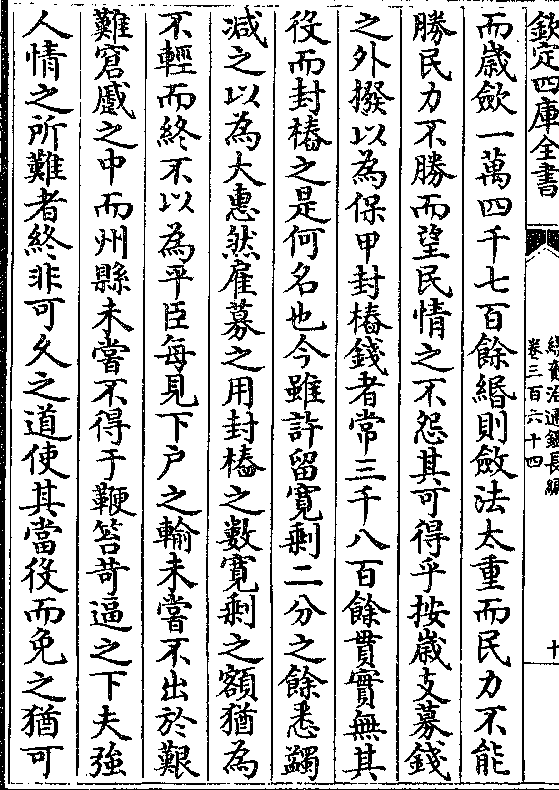 欽定四庫全書
續資治通鑑長編
卷三百六十四
十
而歲斂一萬四千七百餘緡則斂法太重而民力不能
勝民力不勝而望民情之不怨其可得乎按歲支募錢
之外撥以為保甲封樁錢者常三千八百餘貫實無其
役而封樁之是何名也今雖許留寛剩二分之餘悉蠲
减之以為大惠然雇募之用封樁之數寛剩之額猶為
不輕而終不以為平臣每見下户之輸未嘗不出於艱
難窘蹙之中而州縣未嘗不得于鞭笞苛逼之下夫強
人情之所難者終非可久之道使其當役而免之猶可